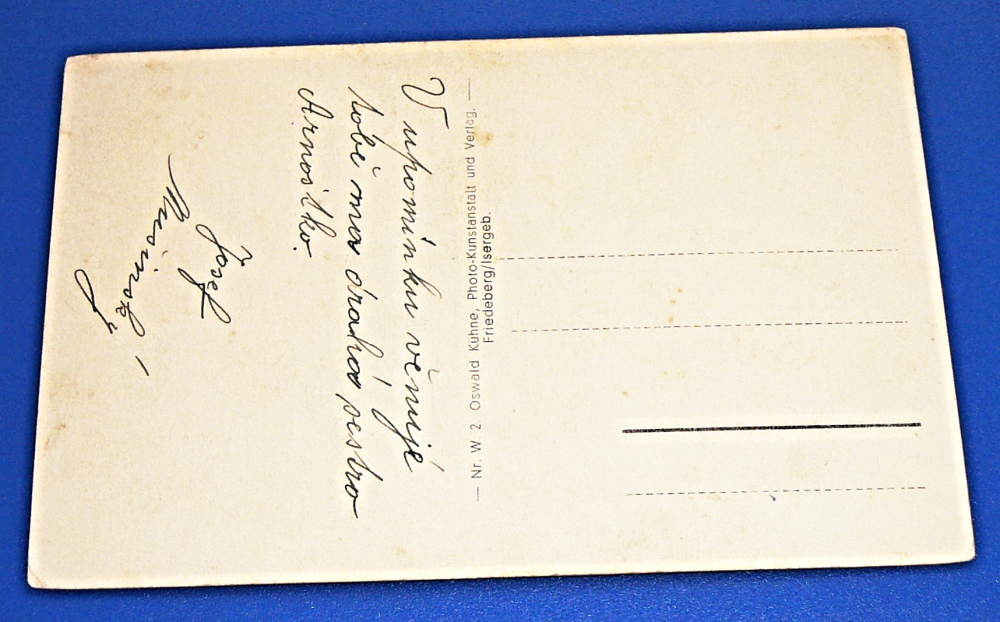 V upomínku věnujé
tobě ma drahá sestro
Arnoštko.
Josef
— Nr. W 2 Oswald Kühne, Photo-Kunstanstalt und Verlag, —
Friedeberg/Isergeb.